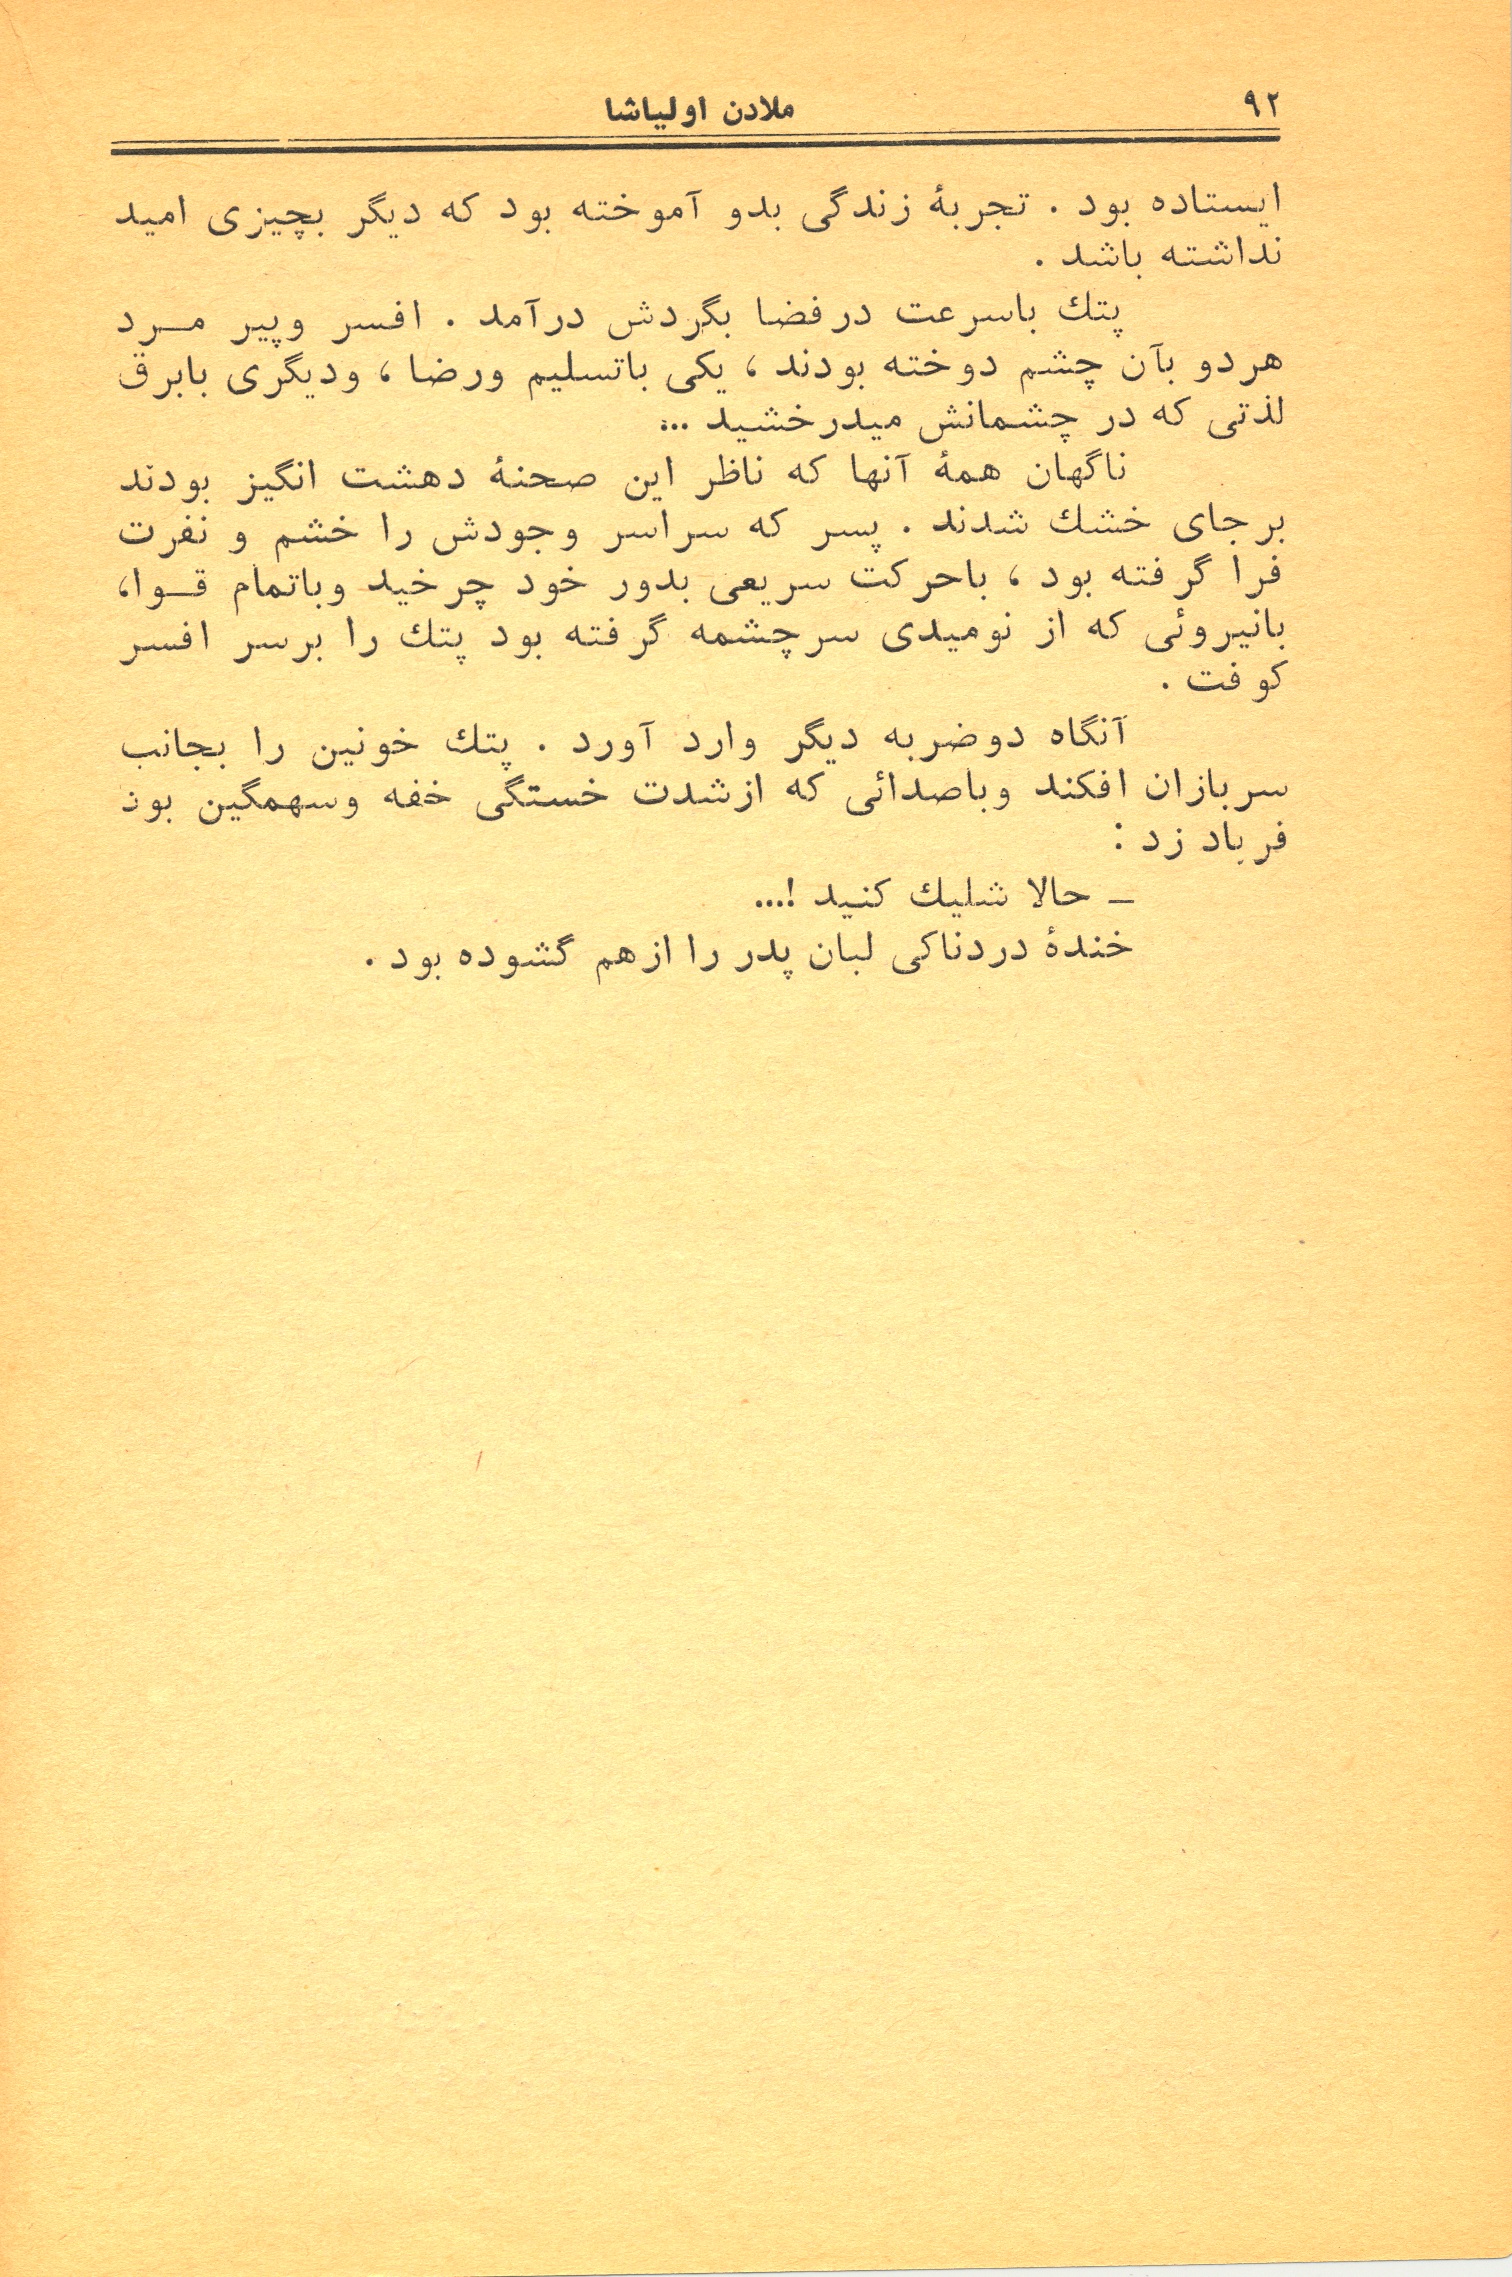 ۹۲
ملادن اولیاشا
ایستاده بود . تجربهٔ زندگی بدو آموخته بود که دیگر بچیزی امید
نداشته باشد .
پتك باسرعت درفضا بگردش درآمد . افسر وپیر مـرد
هردو بآن چشم دوخته بودند ، یکی باتسلیم ورضا ، ودیگری بابرق
لذتی که در چشمانش میدرخشید ...
ناگهان همهٔ آنها که ناظر این صحنهٔ دهشت انگیز بودند
برجای خشك شدند . پسر که سراسر وجودش را خشم و نفرت
فرا گرفته بود ، باحرکت سریعی بدور خود چرخید وباتمام قـوا،
بانیروئی که از نومیدی سرچشمه گرفته بود پتك را برسر افسر
کوفت .
آنگاه دوضربه دیگر وارد آورد . پتك خونین را بجانب
سربازان افکند وباصدائی که ازشدت خستگی خفه وسهمگین بود
فریاد زد :
ـ حالا شلیك کنید !...
خندهٔ دردناکی لبان پدر را ازهم گشوده بود .